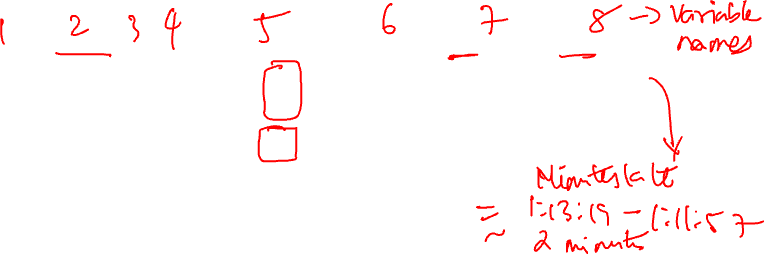 1 2 3 4 5 6 7 8 → Variable
names
Minutes late
≈ 1:13:19 - 1:11:57
2 minutes